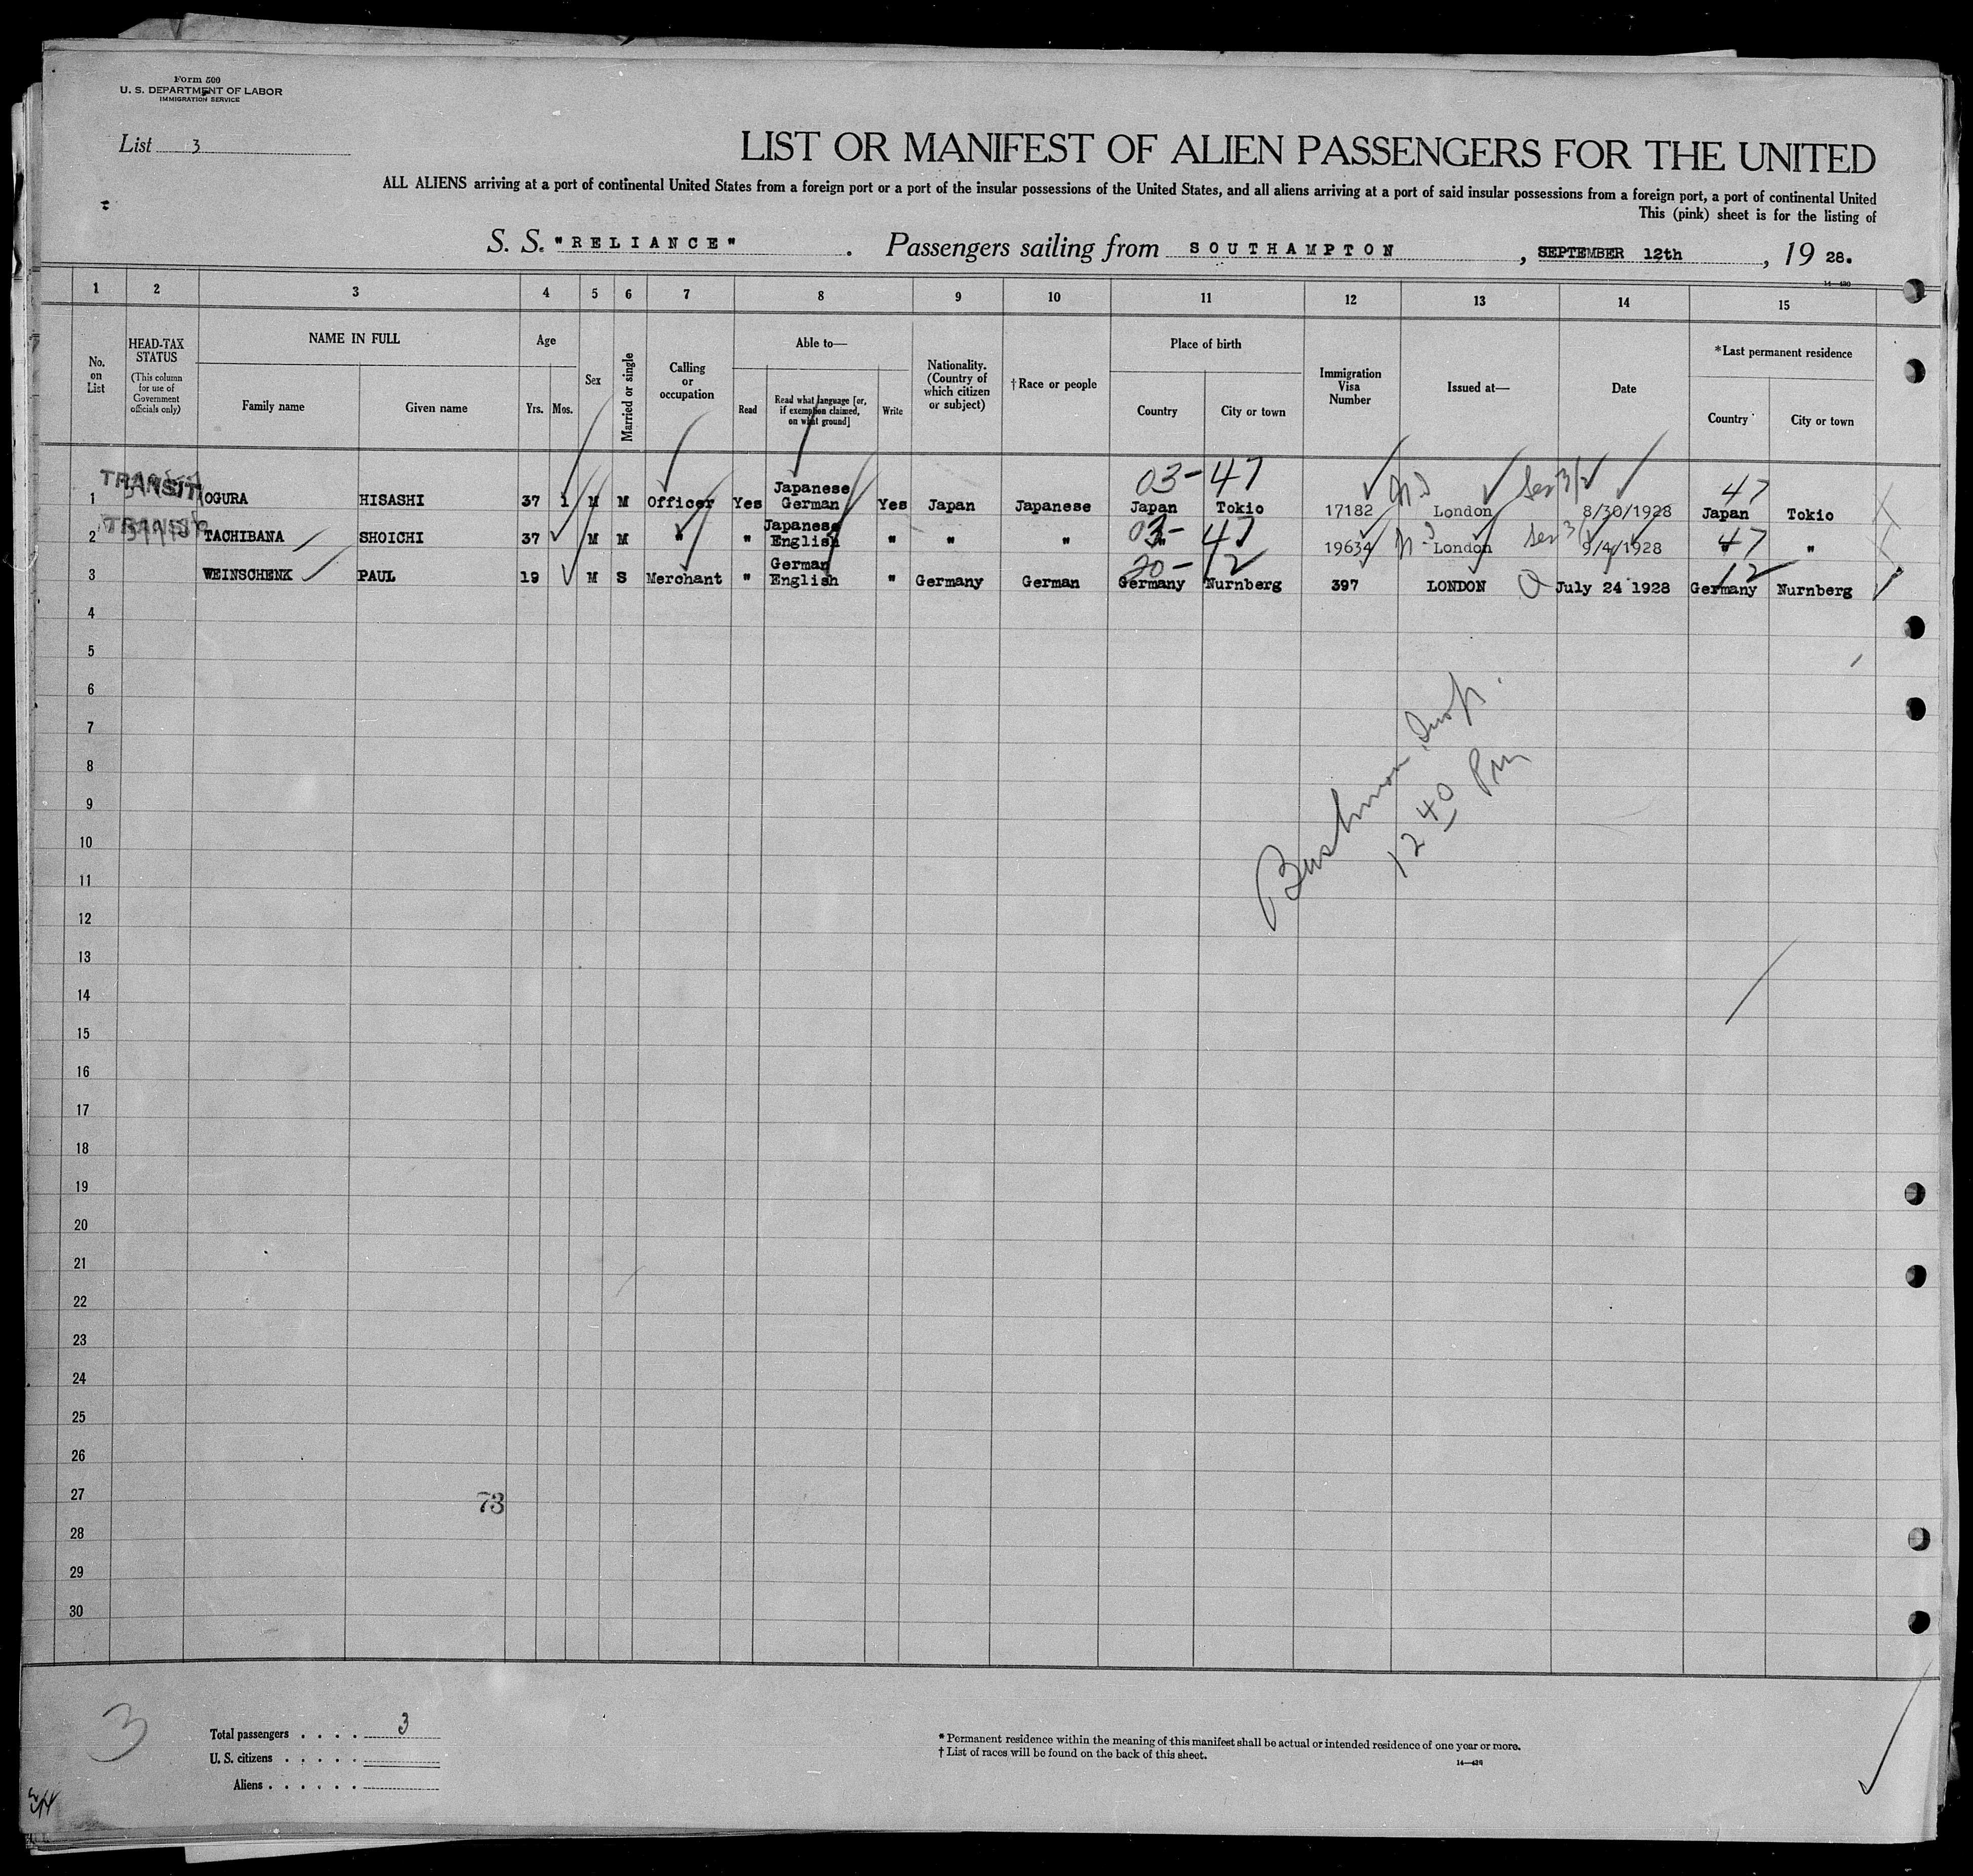 Form 500
U. S. DEPARTMENT OF LABOR
IMMIGRATION SERVICE
List 3
LIST OR MANIFEST OF ALIEN PASSENGERS FOR THE UNITED
ALL ALIENS arriving at a port of continental United States from a foreign port or a port of the insular possessions of the United States, and all aliens arriving at a port of said insular possessions from a foreign port, a port of continental United
This (pink) sheet is for the listing of
S. S. "RELIANCE" . Passengers sailing from SOUTHAMPTON , SEPTEMBER 12th , 19 28.
14—430
1 2 3 4 5 6 7 8 9 10 11 12 13 14 15
No. on List
HEAD-TAX STATUS
(This column for use of Government officials only)
NAME IN FULL
Family name Given name
Age
Yrs. Mos.
Sex
Married or single
Calling or occupation
Able to—
Read
Read what language [or, if exemption claimed, on what ground]
Write
Nationality. (Country of which citizen or subject)
†Race or people
Place of birth
Country City or town
Immigration Visa Number
Issued at—
Date
*Last permanent residence
Country City or town
03-47 47
1 TRANSIT OGURA HISASHI 37 1 M M Officer Yes Japanese German Yes Japan Japanese Japan Tokio 17182 London 8/30/1928 Japan Tokio
03-47 47
2 TRANSIT TACHIBANA SHOICHI 37 M M " " Japanese English " " " " 19634 London 9/4/1928 " "
20-12 12
3 WEINSCHENK PAUL 19 M S Merchant " German English " Germany German Germany Nurnberg 397 LONDON July 24 1928 Germany Nurnberg
4
5
6
7
8
9
10
11
12
13
14
15
16
17
18
19
20
21
22
23
24
25
26
27
28
29
30
Bushman, Insp.
12 40 Pm
73
3
Total passengers . . . . 3
U. S. citizens . . . . .
Aliens . . . . . .
* Permanent residence within the meaning of this manifest shall be actual or intended residence of one year or more.
† List of races will be found on the back of this sheet.